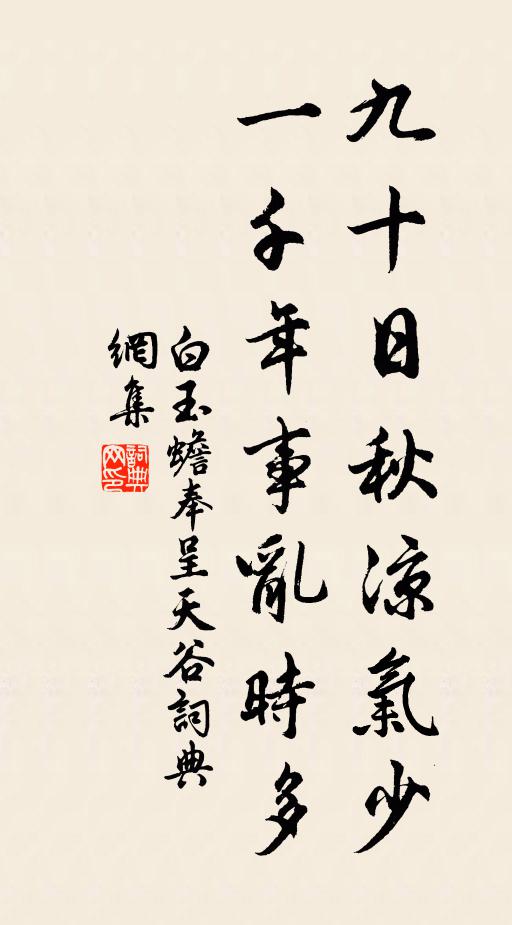 九十日秋涼氣少
一千年事亂時多
白玉蟾奉呈天谷詞典
網集
詞典
网印